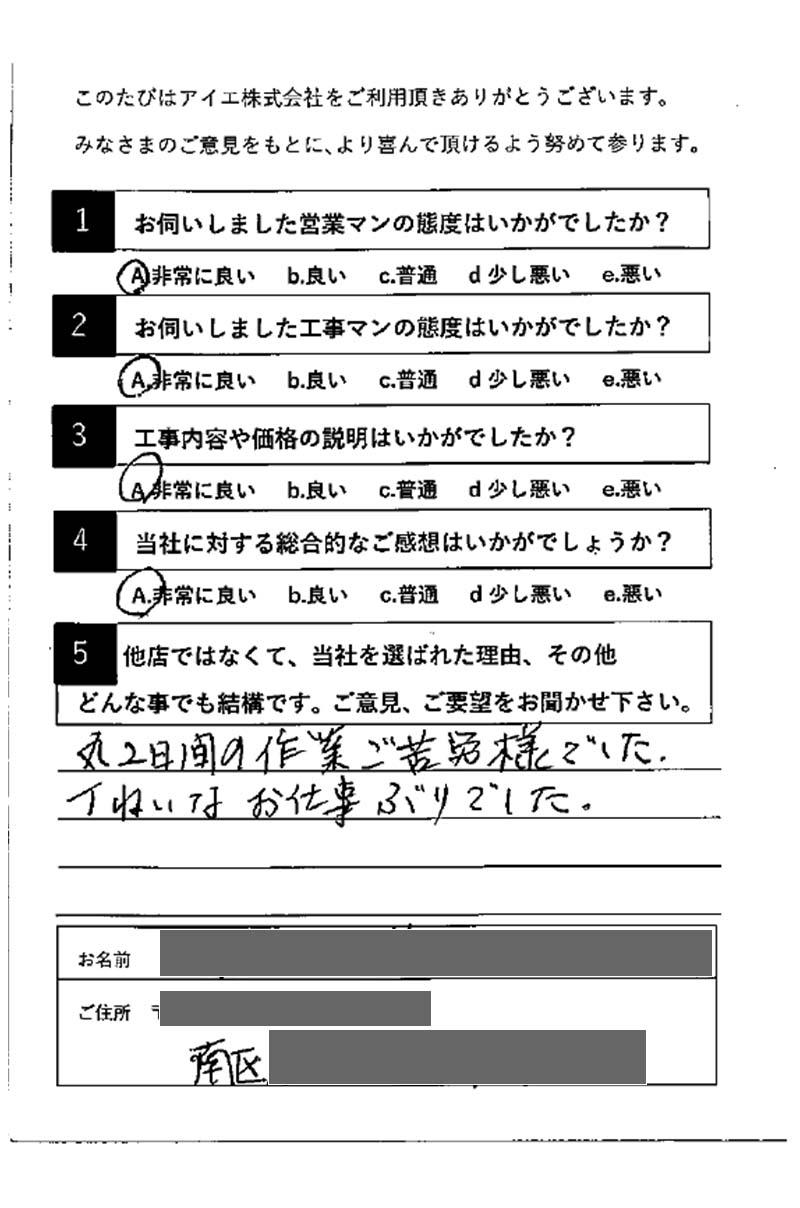 このたびはアイエ株式会社をご利用頂きありがとうございます。
みなさまのご意見をもとに、より喜んで頂けるよう努めて参ります。
1 お伺いしました営業マンの態度はいかがでしたか？
A.非常に良い b.良い c.普通 d 少し悪い e.悪い
2 お伺いしました工事マンの態度はいかがでしたか？
A.非常に良い b.良い c.普通 d 少し悪い e.悪い
3 工事内容や価格の説明はいかがでしたか？
A.非常に良い b.良い c.普通 d 少し悪い e.悪い
4 当社に対する総合的なご感想はいかがでしょうか？
A.非常に良い b.良い c.普通 d 少し悪い e.悪い
5 他店ではなくて、当社を選ばれた理由、その他
どんな事でも結構です。ご意見、ご要望をお聞かせ下さい。
丸2日間の作業ご苦労様でした.
丁ねいなお仕事ぶりでした。
お名前
ご住所 〒
南区